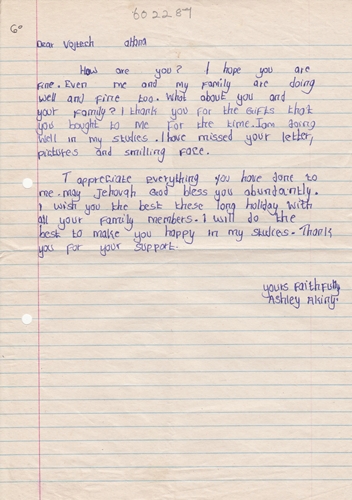 60 2 2 87
Dear Vojtech
How are you? I hope you are
fine. Even me and my family are doing
well and fine too. What about you and
your family? I thank you for the gifts that
you bought to me for the time. Iam doing
well in my studies. I have missed your letter,
pictures and smilling face.
I appreciate everything you have done to
me. may Jehovah God bless you abundantly.
I wish you the best these long holiday with
all your family members. I will do the
best to make you happy in my studies. Thank
you for your support.
yours faithfully
Ashley Akiny